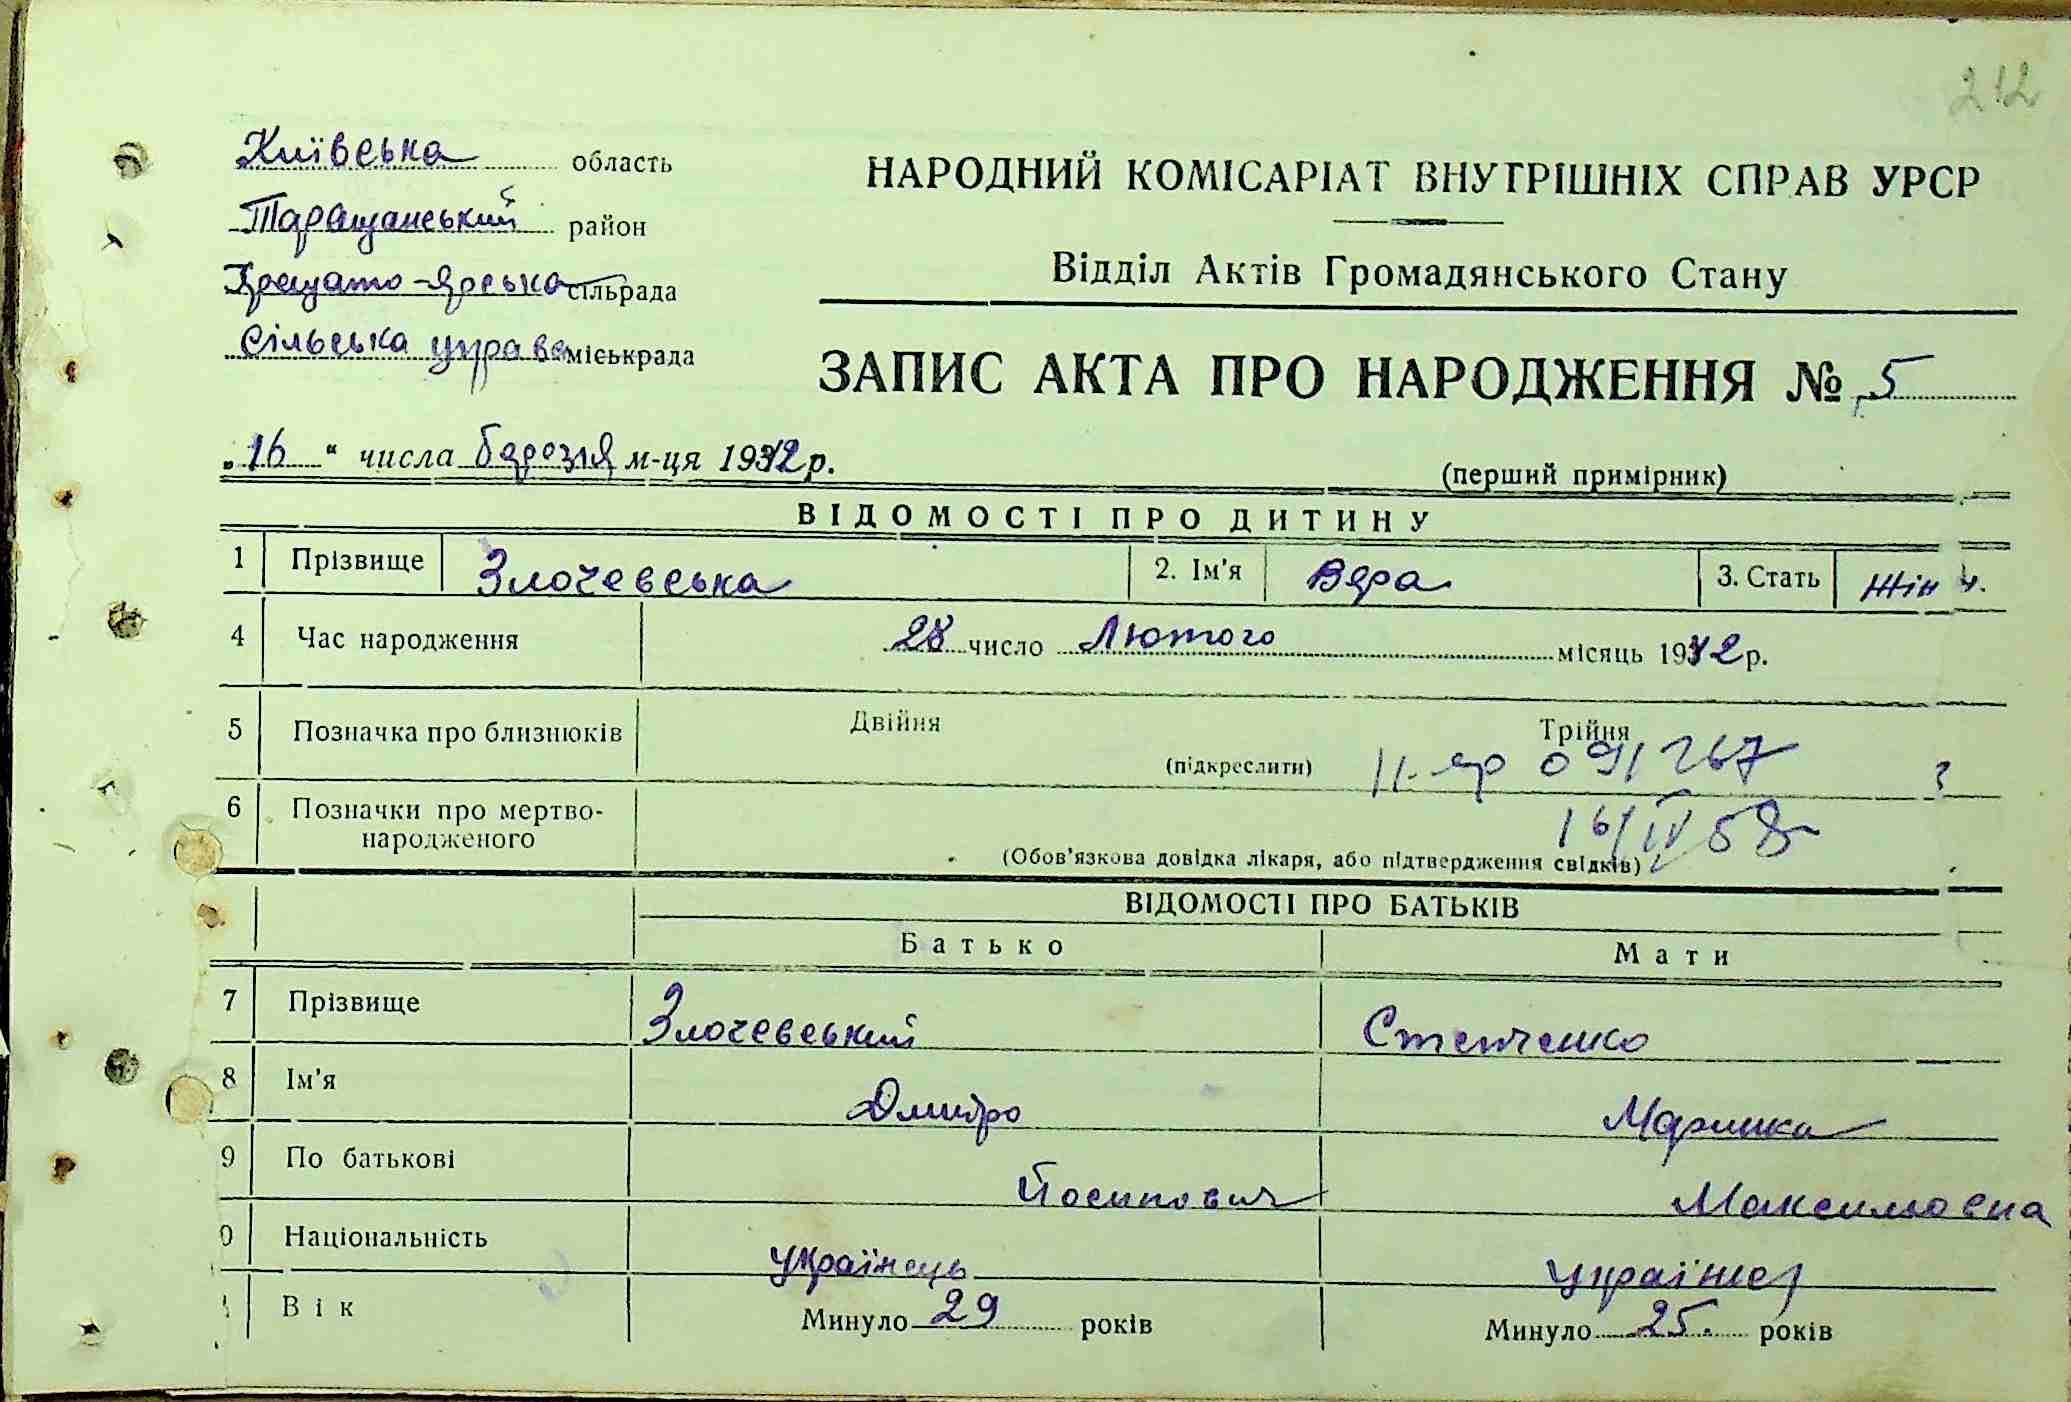 212
Київська область
Таращанський район
Крещато-Ярська сільрада
Сільська управа міськрада
НАРОДНИЙ КОМІСАРІАТ ВНУТРІШНІХ СПРАВ УРСР
Відділ Актів Громадянського Стану
ЗАПИС АКТА ПРО НАРОДЖЕННЯ № 5
„16" числа березня м-ця 1942 р.
(перший примірник)
ВІДОМОСТІ ПРО ДИТИНУ
1 Прізвище Злочевська 2. Ім'я Вера 3. Стать жін
4 Час народження 28 число Лютого місяць 1942 р.
5 Позначка про близнюків Двійня (підкреслити) Трійня
091267
6 Позначки про мертвонародженого
16/IV 58
(Обов'язкова довідка лікаря, або підтвердження свідків)
ВІДОМОСТІ ПРО БАТЬКІВ
Батько Мати
7 Прізвище Злочевський Степченко
8 Ім'я Дмитро Маринка
9 По батькові Йосипович Максимовна
0 Національність українець
Вік Минуло 29 років Минуло 25. років